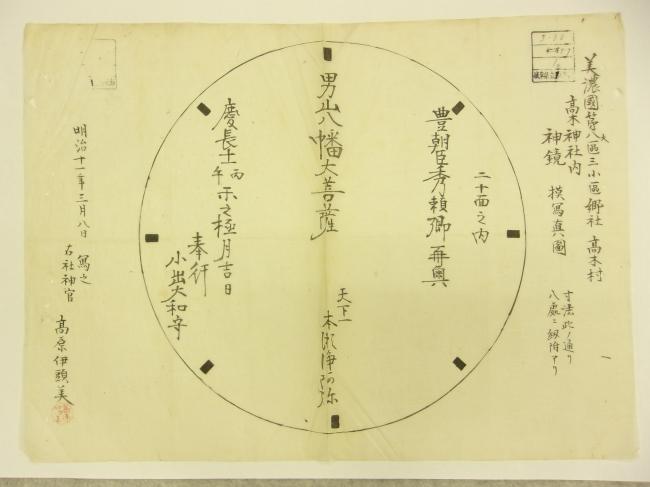 美濃國第八大區三小區郷社 高木村
高木神社内
神鏡 模寫真圖
寸法此ノ通り
八處ニ釼附アリ
二十面之内
豊朝臣秀頼卿再興
男山八幡大菩薩
天下一
本瀬浄阿弥
慶長十一丙午示之極月吉日
奉行
小出大和守
明治十一年三月八日 寫之
右社神官
高原伊頭美